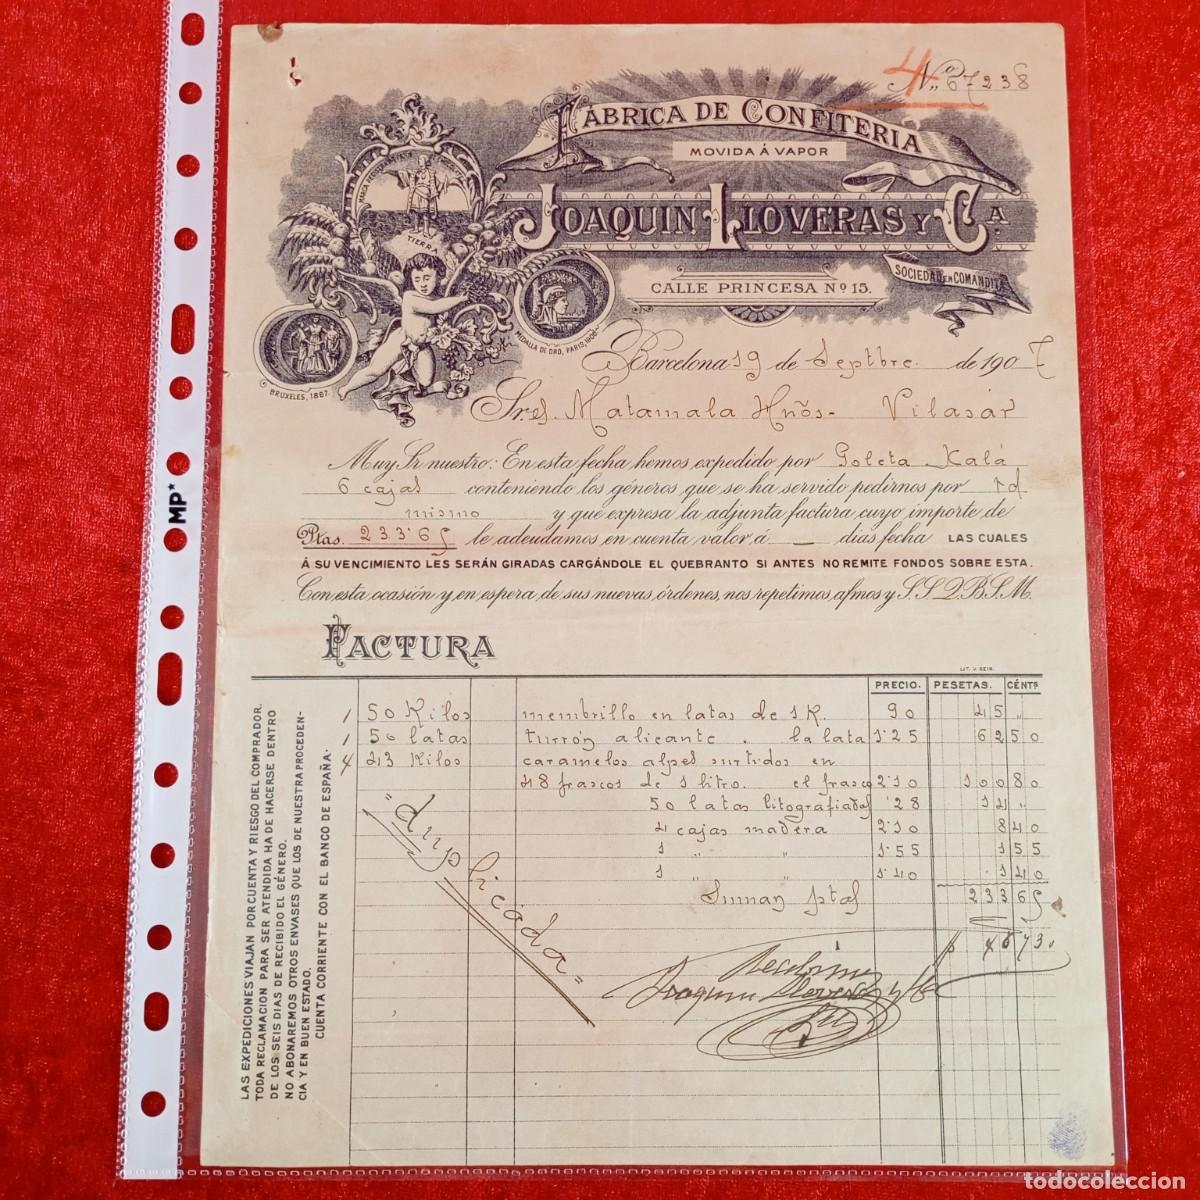 Nº 67238
FÁBRICA DE CONFITERIA
MOVIDA Á VAPOR
JOAQUIN LLOVERAS Y Cª
SOCIEDAD EN COMANDITA
CALLE PRINCESA Nº 15.
TIERRA
BRUXELES, 1897.
MEDALLA DE ORO, PARIS, 1900
Barcelona 19 de Septbre. de 1907
Sres. Matamala Hnos- Vilasár
Muy Sr nuestro: En esta fecha hemos expedido por Goleta Kalá
6 cajas conteniendo los géneros que se ha servido pedirnos por
mismo y que expresa la adjunta factura cuyo importe de
Ptas. 233'65 le adeudamos en cuenta valor á — dias fecha LAS CUALES
Á SU VENCIMIENTO LES SERÁN GIRADAS CARGÁNDOLE EL QUEBRANTO SI ANTES NO REMITE FONDOS SOBRE ESTA.
Con esta ocasión y en espera de sus nuevas órdenes, nos repetimos afmos y S.S.Q.B.S.M.
FACTURA
LIT. V. SEIX.
PRECIO. PESETAS. CÉNTS
1 50 Kilos membrillo en latas de 1 K. 90 45 "
1 50 latas turrón alicante. la lata 1'25 62 50
4 43 Kilos caramelos alpes surtidos en
48 frascos de 1 litro. el frasco 2'10 100 80
50 latas litografiadas '28 14 "
4 cajas madera 2'10 8 40
1 " " 1'55 1 55
1 " " 1'40 1 40
Suman ptas 233 65
"duplicada"
Recibimos
Joaquin Lloveras y Cª
LAS EXPEDICIONES VIAJAN POR CUENTA Y RIESGO DEL COMPRADOR.
TODA RECLAMACION PARA SER ATENDIDA HA DE HACERSE DENTRO
DE LOS SEIS DIAS DE RECIBIDO EL GÉNERO.
NO ABONAREMOS OTROS ENVASES QUE LOS DE NUESTRA PROCEDEN-
CIA Y EN BUEN ESTADO.
CUENTA CORRIENTE CON EL BANCO DE ESPAÑA.
MP
todocoleccion